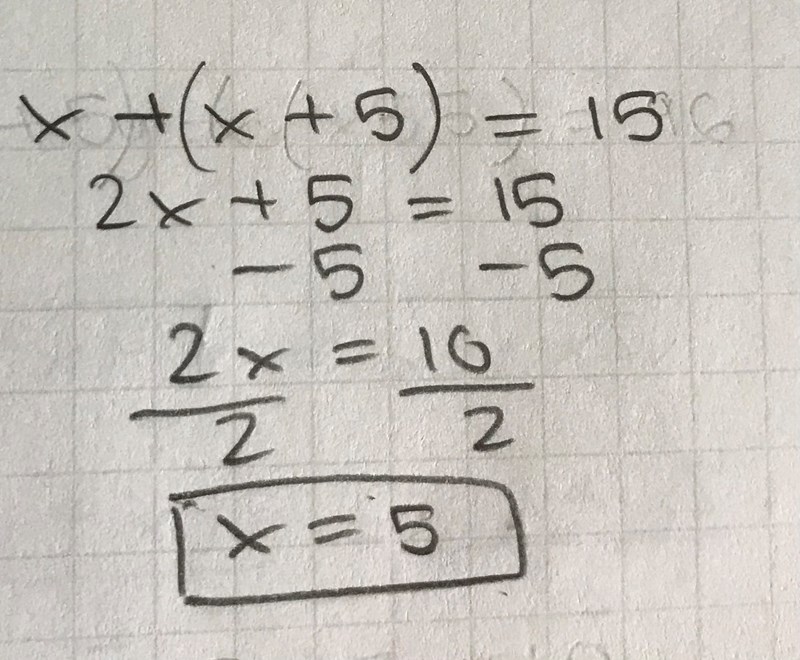 x + (x + 5) = 15
2x + 5 = 15
- 5 - 5
2x = 10
2 2
x = 5